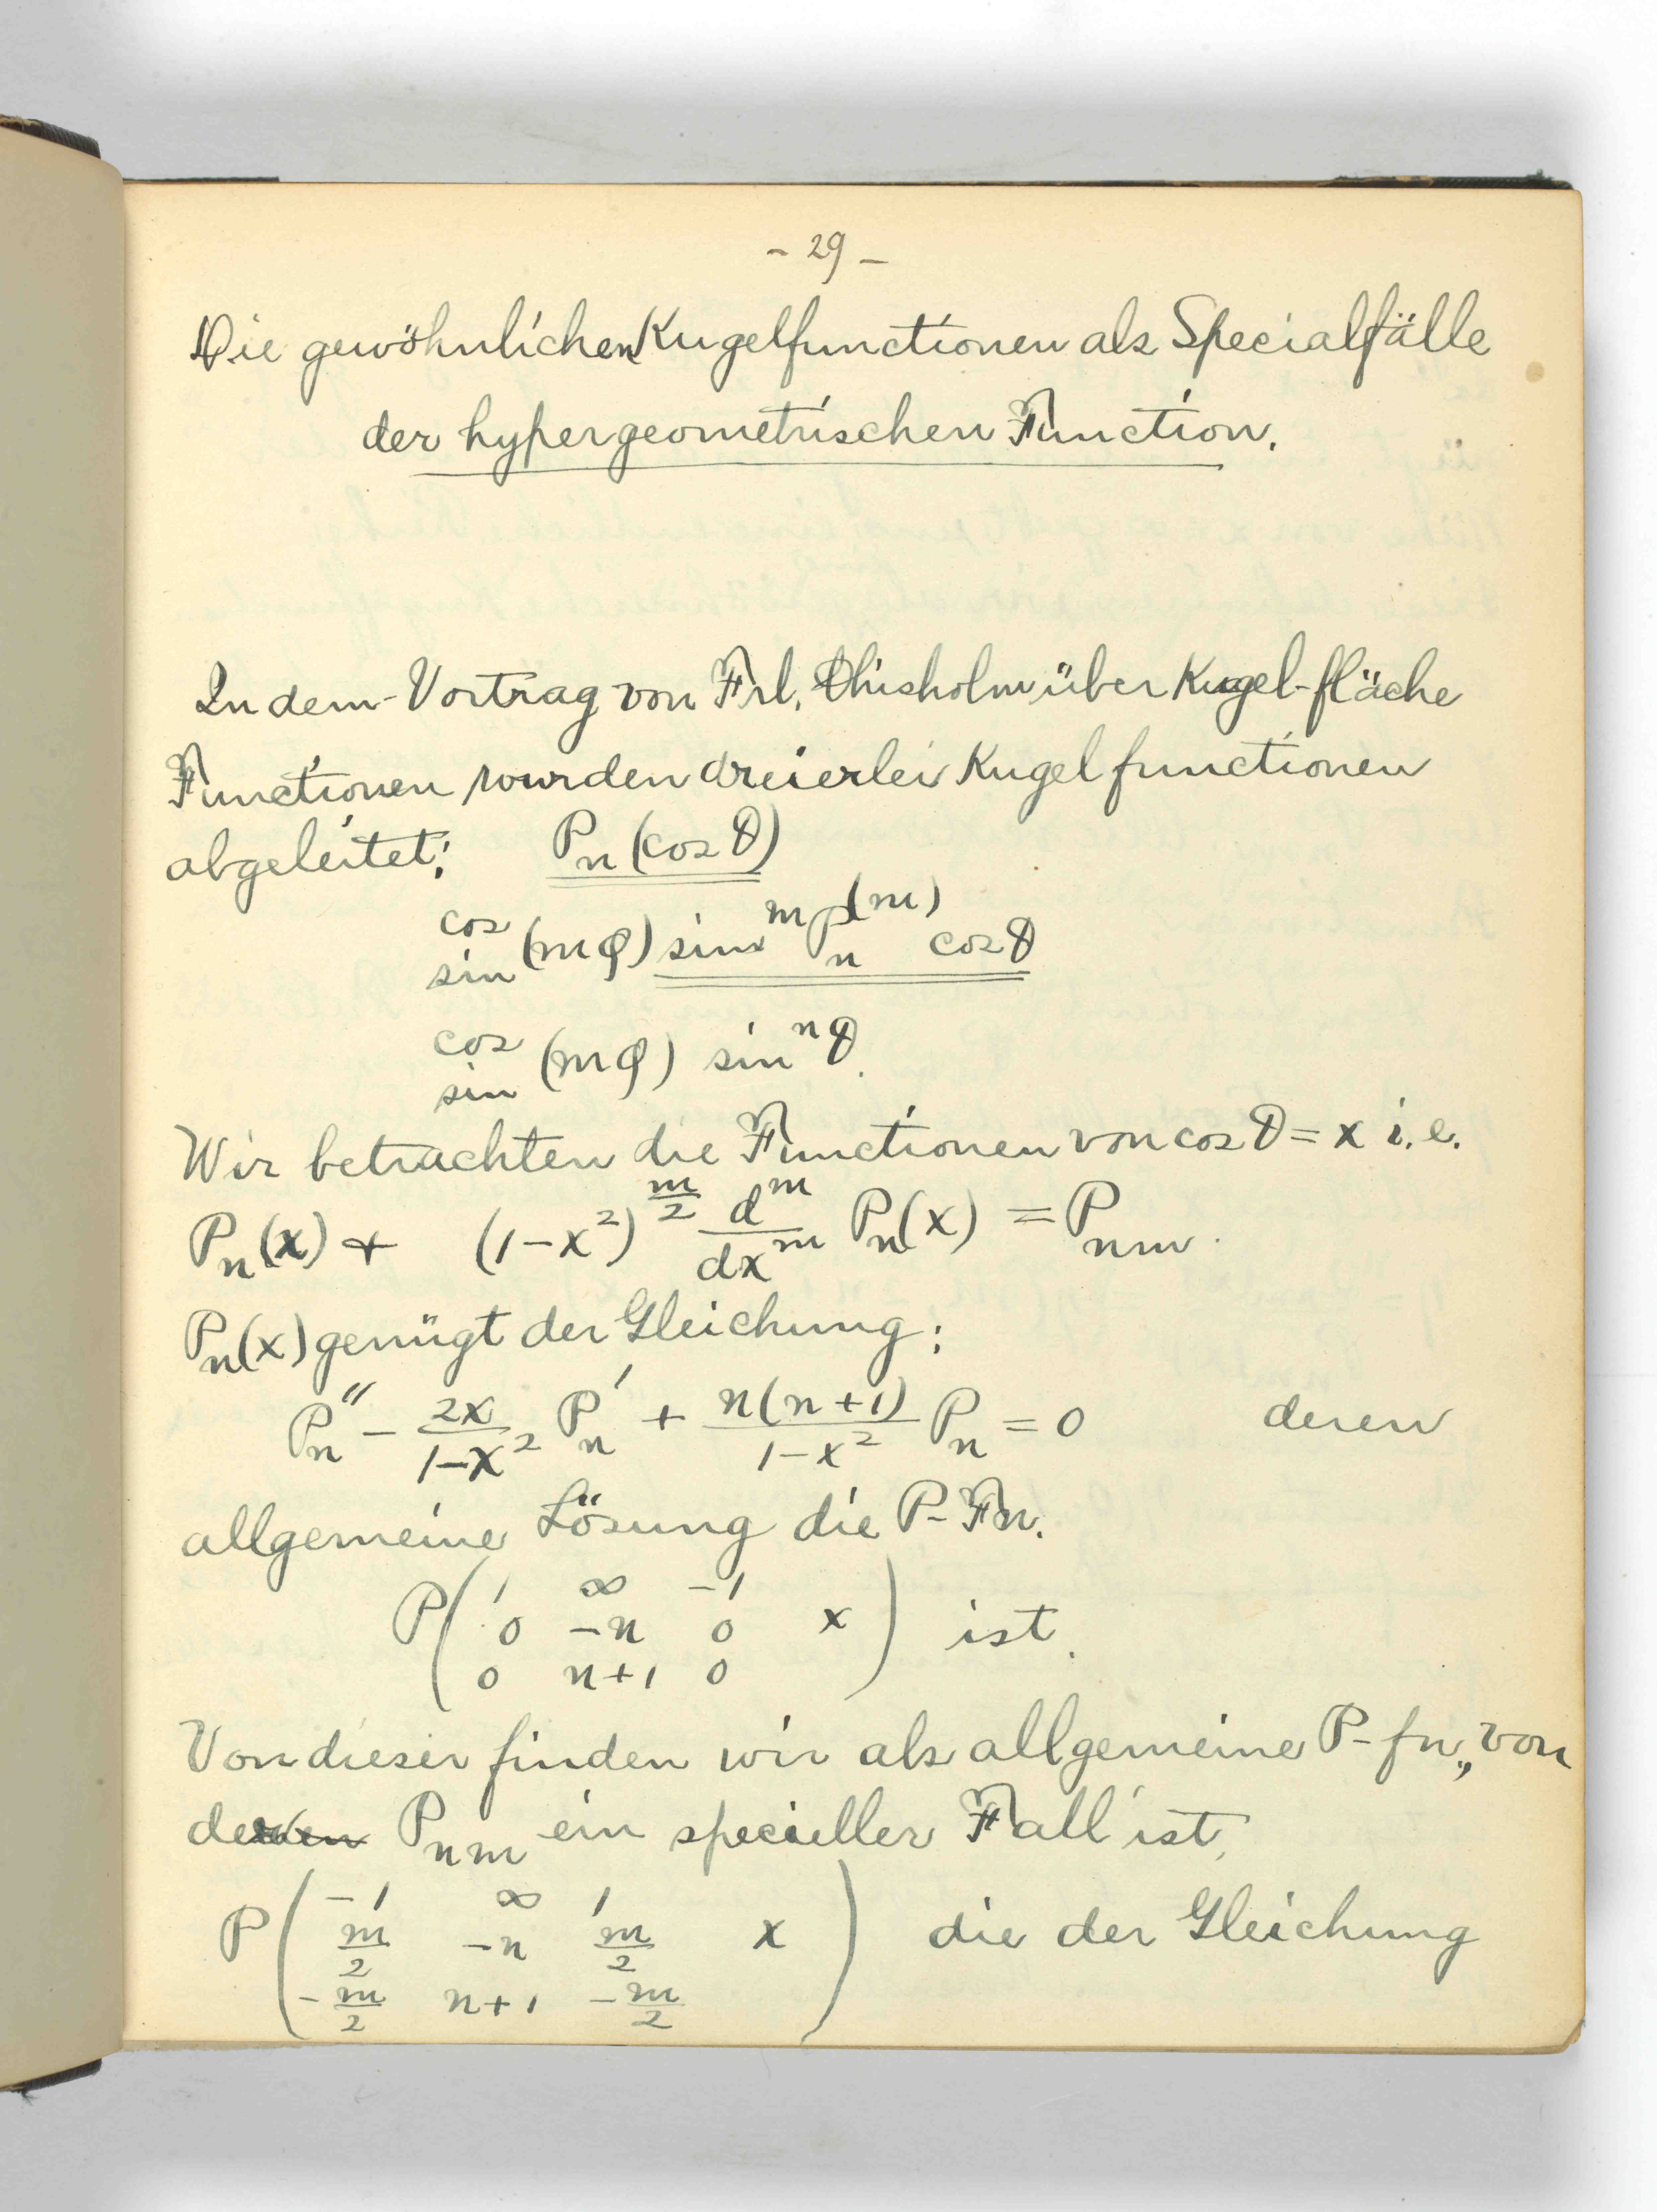 - 29 -
Die gewöhnlichen Kugelfunctionen als Specialfälle
der hypergeometrischen Function.
In dem Vortrag von Frl. Chisholm über Kugel-fläche
Functionen wurden dreierlei Kugelfunctionen
abgeleitet: P_n (cos θ)
cos/sin (mφ) sin^m P_n^(m) cos θ
cos/sin (mφ) sin^n θ.
Wir betrachten die Functionen von cos θ = x i.e.
P_n(x) + (1-x^2)^(m/2) d^m/dx^m P_n(x) = P_nm.
P_n(x) genügt der Gleichung:
P_n'' - 2x/(1-x^2) P_n' + n(n+1)/(1-x^2) P_n = 0 deren
allgemeine Lösung die P-Fn.
P( 1 ∞ -1
0 -n 0 x ) ist.
0 n+1 0
Von dieser finden wir als allgemeine P-fn., von
der P_nm ein specieller Fall ist,
P( -1 ∞ 1
m/2 -n m/2 x ) die der Gleichung
-m/2 n+1 -m/2